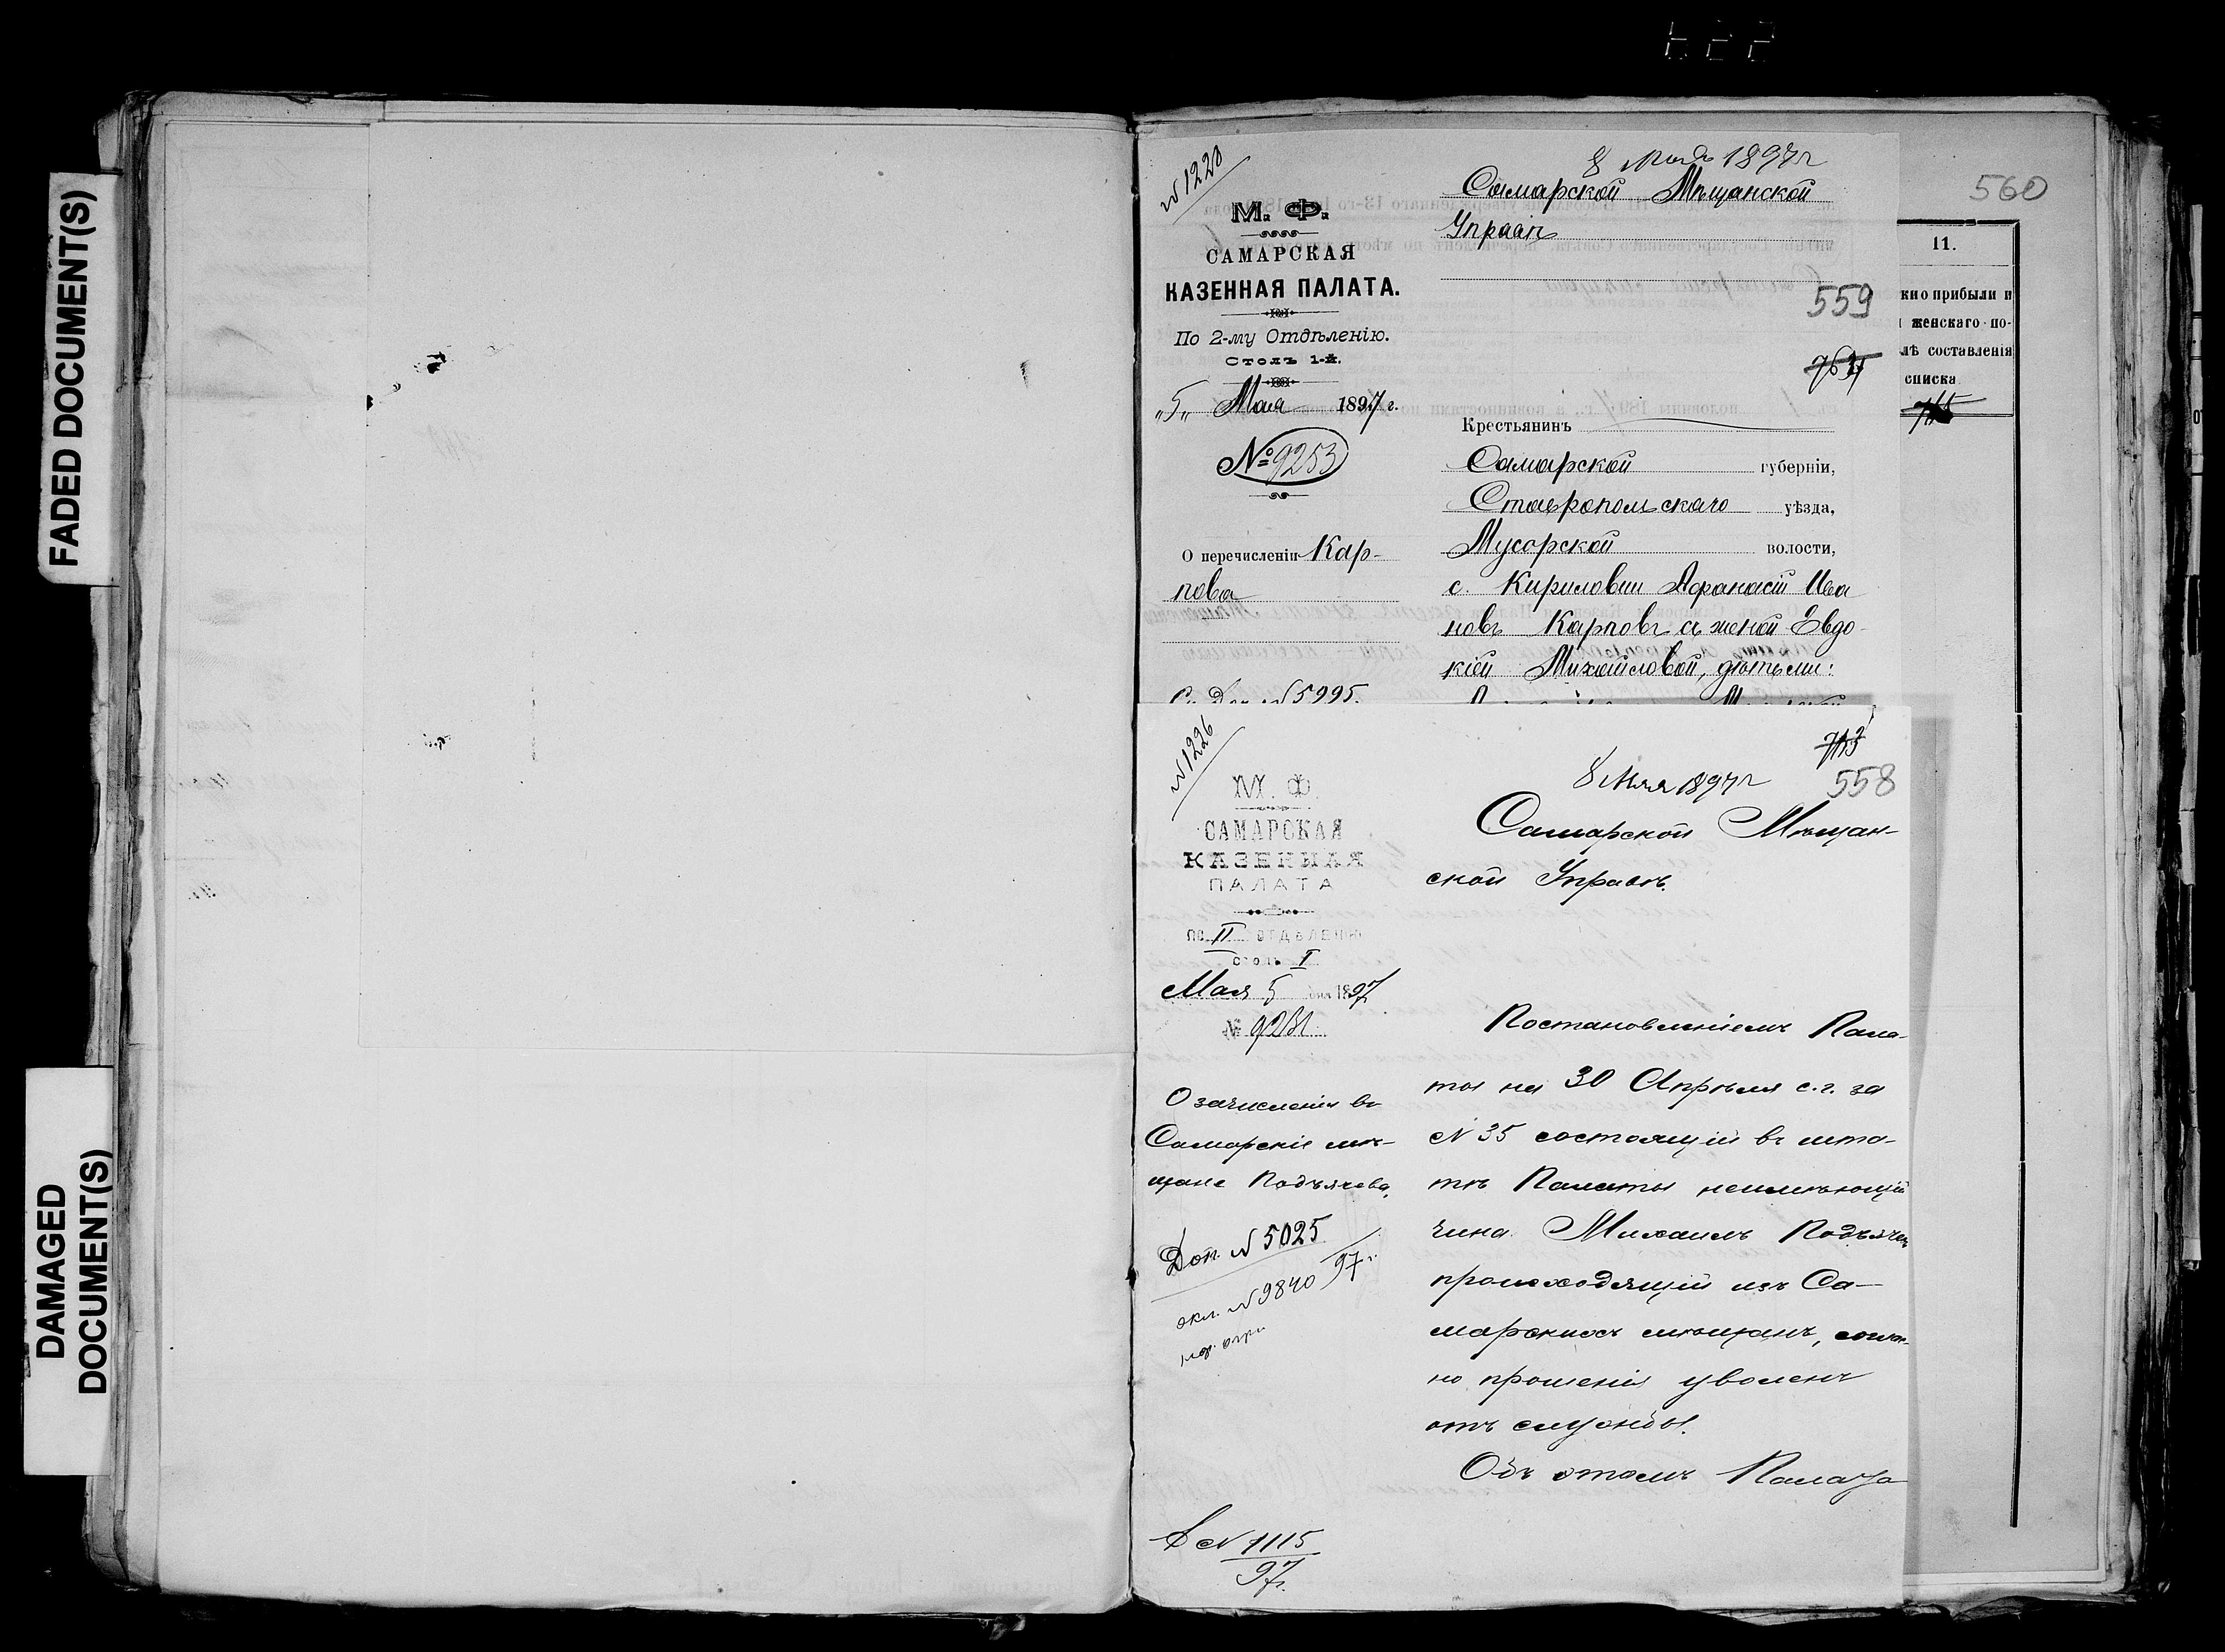 FADED DOCUMENT(S)
DAMAGED
DOCUMENT(S)
560
11.
кно прибыли и
женскаго по-
лѣ составленія
списка
№ 1228
М. Ф.
САМАРСКАЯ
КАЗЕННАЯ ПАЛАТА.
По 2-му Отдѣленію.
Столъ 1-й.
"5" Мая 1897 г.
№ 9253
О перечисленіи Кар-
пова
№ 5995.
8 1897 г
Самарской Мѣщанской
Управѣ
559
Крестьянинъ
Самарской губерніи,
Ставропольскаго уѣзда,
Мусорской волости,
с. Кириловки Афанасій Ива
новъ Карповъ съ женой Евдо-
кіей Михайловой, дѣтьми:
№ 1226
М. Ф.
САМАРСКАЯ
КАЗЕННАЯ
ПАЛАТА
ПО II ОТДѢЛЕНІЮ
столъ I
Мая 5 дня 1897
№ 9231
О зачисленіи въ
Самарскіе мѣ-
щане Подъячева.
Доп. № 5025
97 г.
№ 9840
№ 1115
97 г.
8 Мая 1897 г
558
Самарской Мѣщан-
ской Управѣ.
Постановленіемъ Пала-
ты на 30 Апрѣля с.г. за
№ 35 состоящій въ шта-
тѣ Палаты неимѣющій
чина Михаилъ Подъячев
происходящій изъ Са-
марскихъ мѣщанъ, соглас-
но прошенія уволенъ
отъ службы.
Объ этомъ Палата